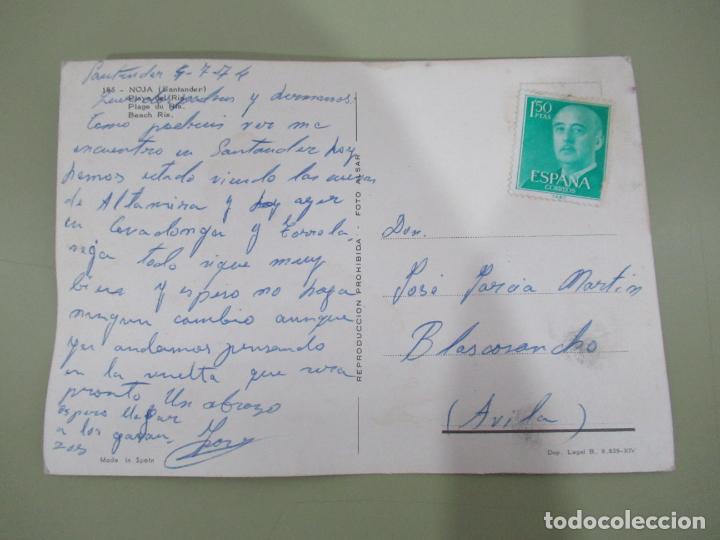 Santander 9-7-74
185 - NOJA (Santander)
Playa del Ris.
Plage du Ris.
Beach Ris.
padres y hermanos:
Como podreis ver me
encuentro en Santander hoy
hemos estado viendo las cuevas
de Altamira y ayer
en Covadonga y Torrela-
vega todo sigue muy
bien y espero no haga
ningun cambio aunque
ya andamos pensando
en la vuelta que sera
pronto Un abrazo
espero llegar
a los garban-
zos
Made in Spain
REPRODUCCION PROHIBIDA - FOTO ALSAR
1'50
PTAS
ESPAÑA
CORREOS
Don.
José García Martin
Blascosancho
(Avila)
Dep. Legal B. 8.835-XIV
todocoleccion
todocoleccion.net